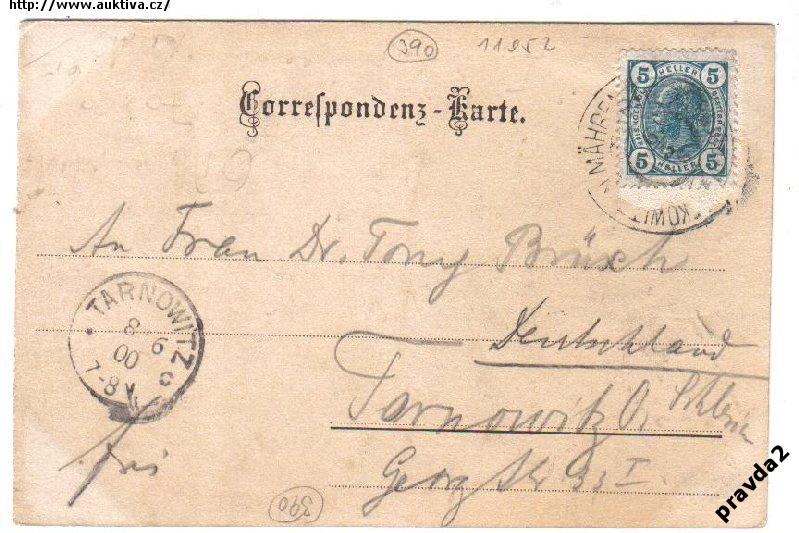 http://www.auktiva.cz/
390 11952
Correspondenz-Karte.
5 HELLER 5
5 HELLER 5
MÄHREN KOWIT
An Frau Dr. Tony Brüsch
TARNOWITZ
8 6
00
7-8 V.
c
Deutschland
Tarnowitz O. Schlesien
Georgstr I
390
pravda2